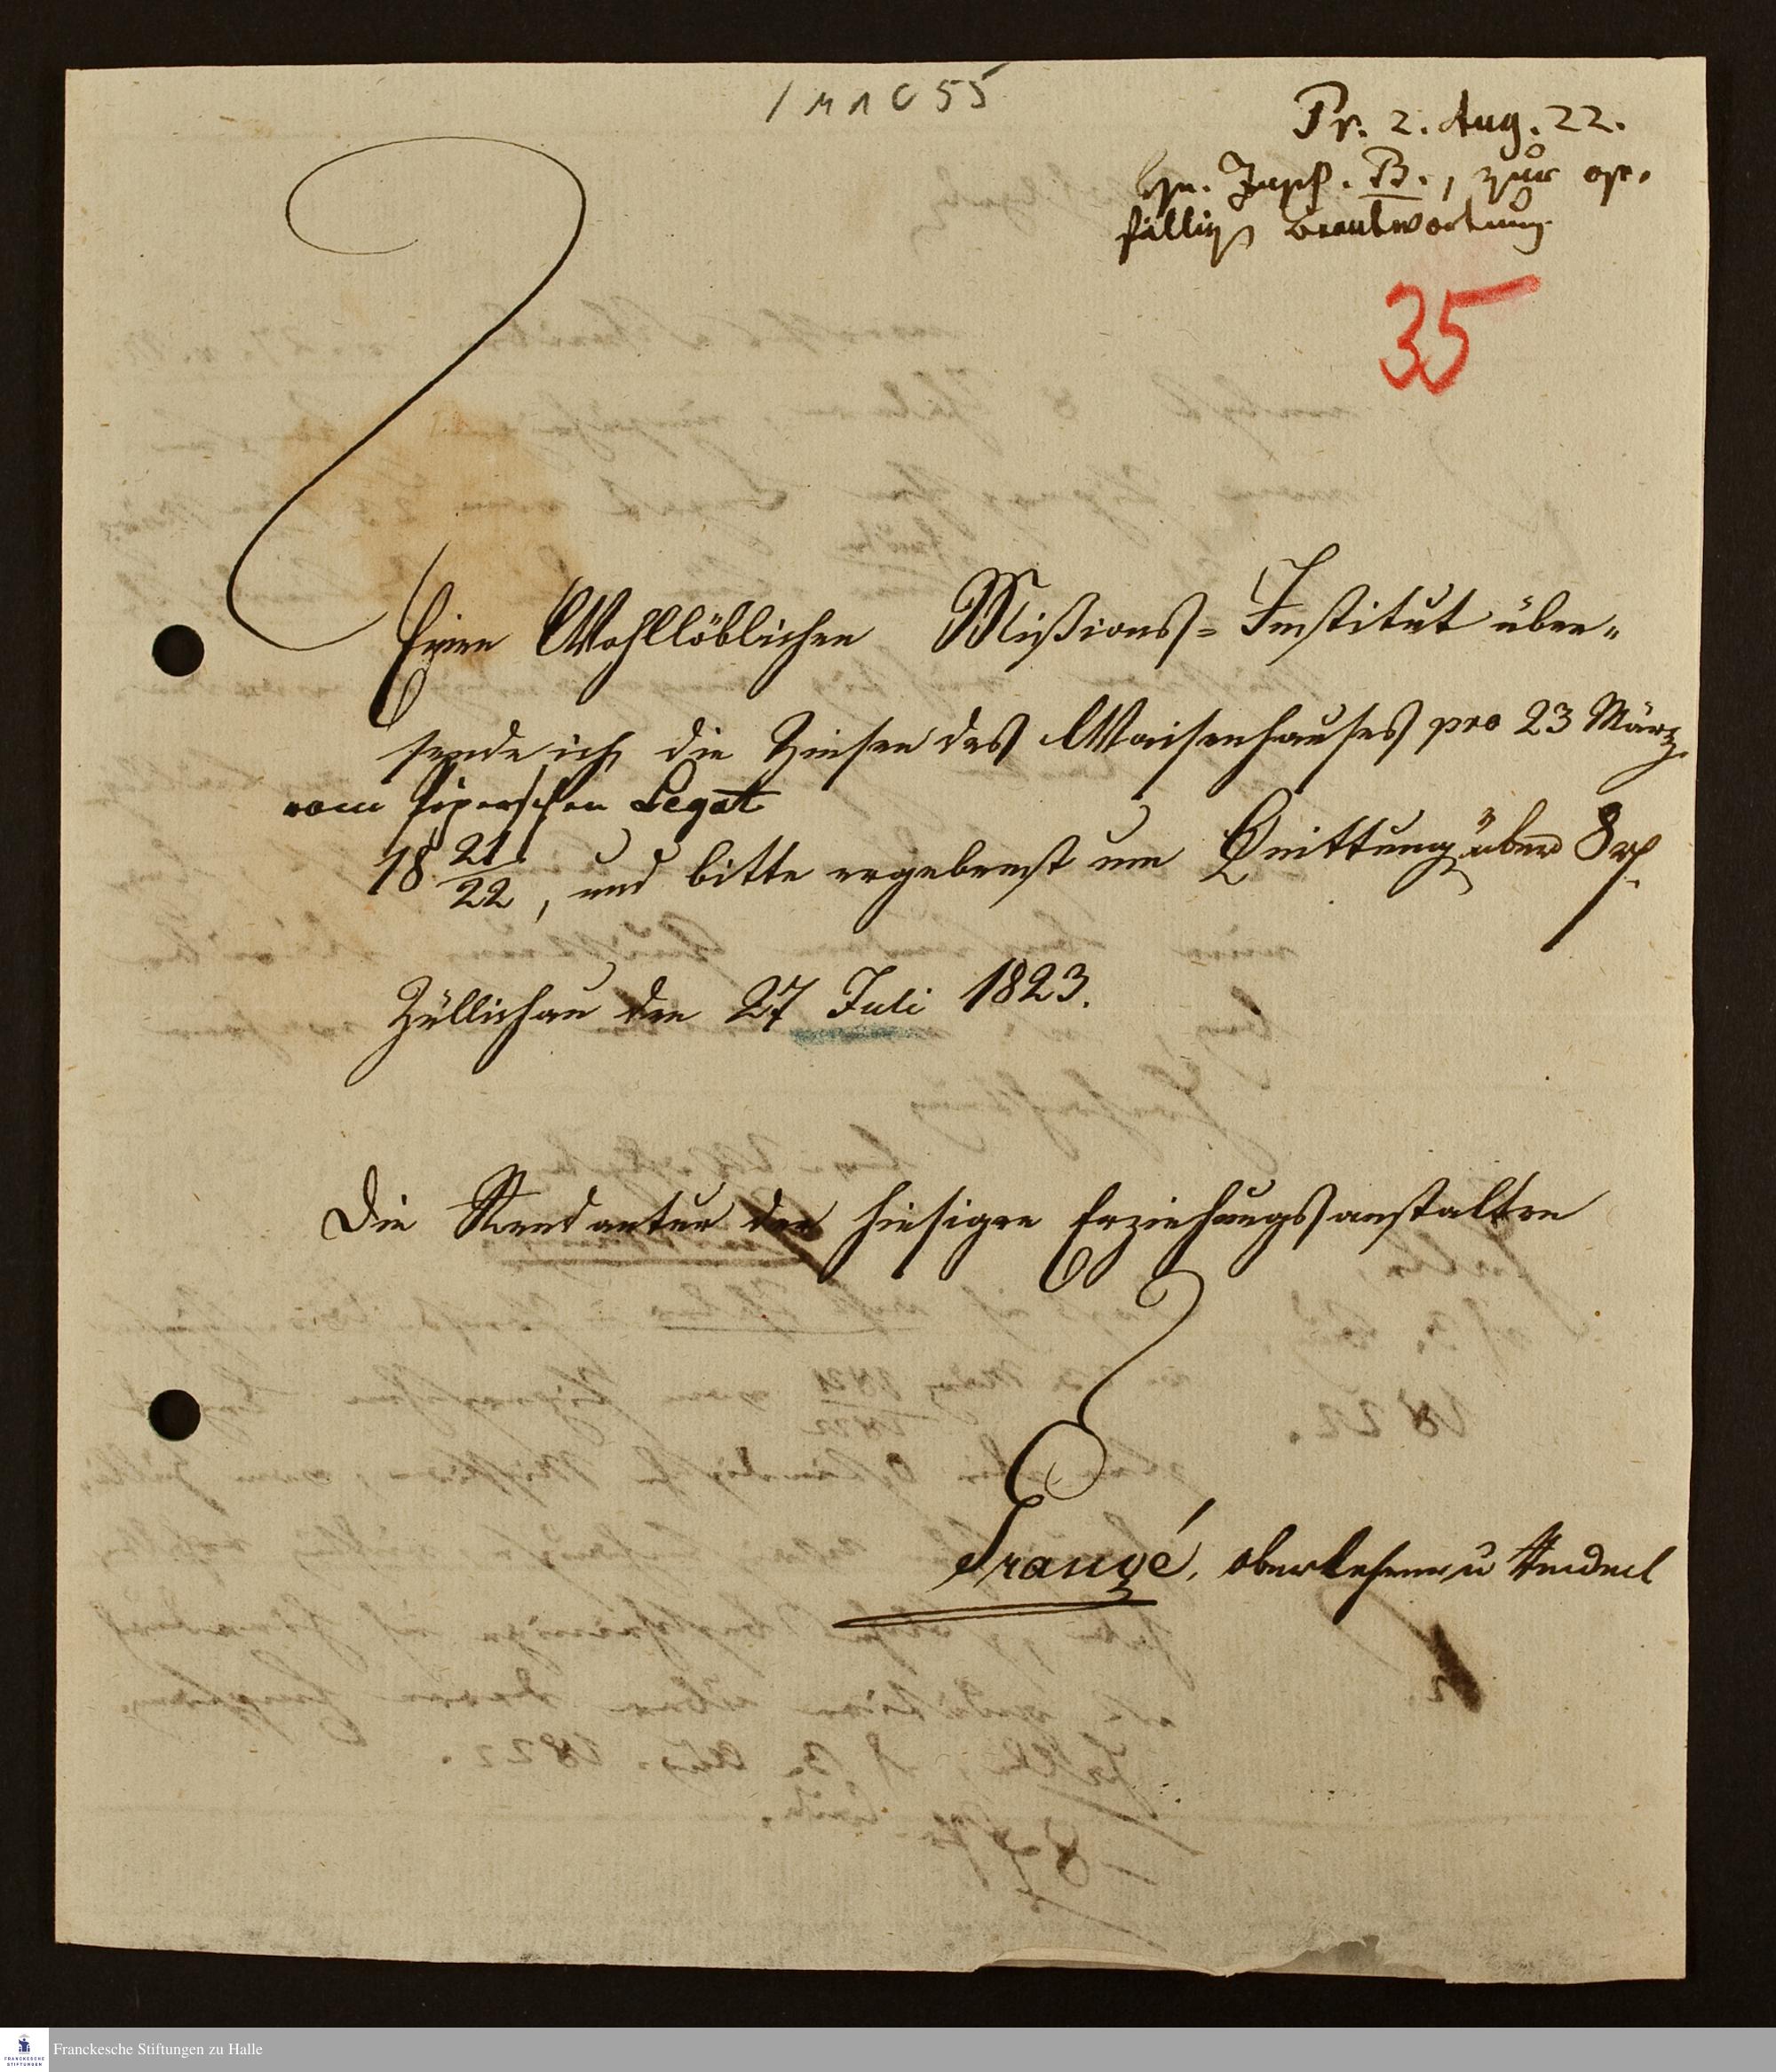 1 M 1 C 55
Pr. 2. Aug. 22.
Hn. Insp. B., zur ge-
fälligen Beantwortung
35
Einem Wohllöblichen Mißions= Institut über-
sende ich die Zinsen des Waisenhauses pro 23 März
vom Legat
18 21/22, und bitte ergebenst um Quittung über 8 rh.
Züllichau den 27 Juli 1823.
Die Rendantur der hiesigen Erziehungsanstalten
Frangé, Oberlehrer u Rendant
Franckesche Stiftungen zu Halle
FRANCKESCHE
STIFTUNGEN